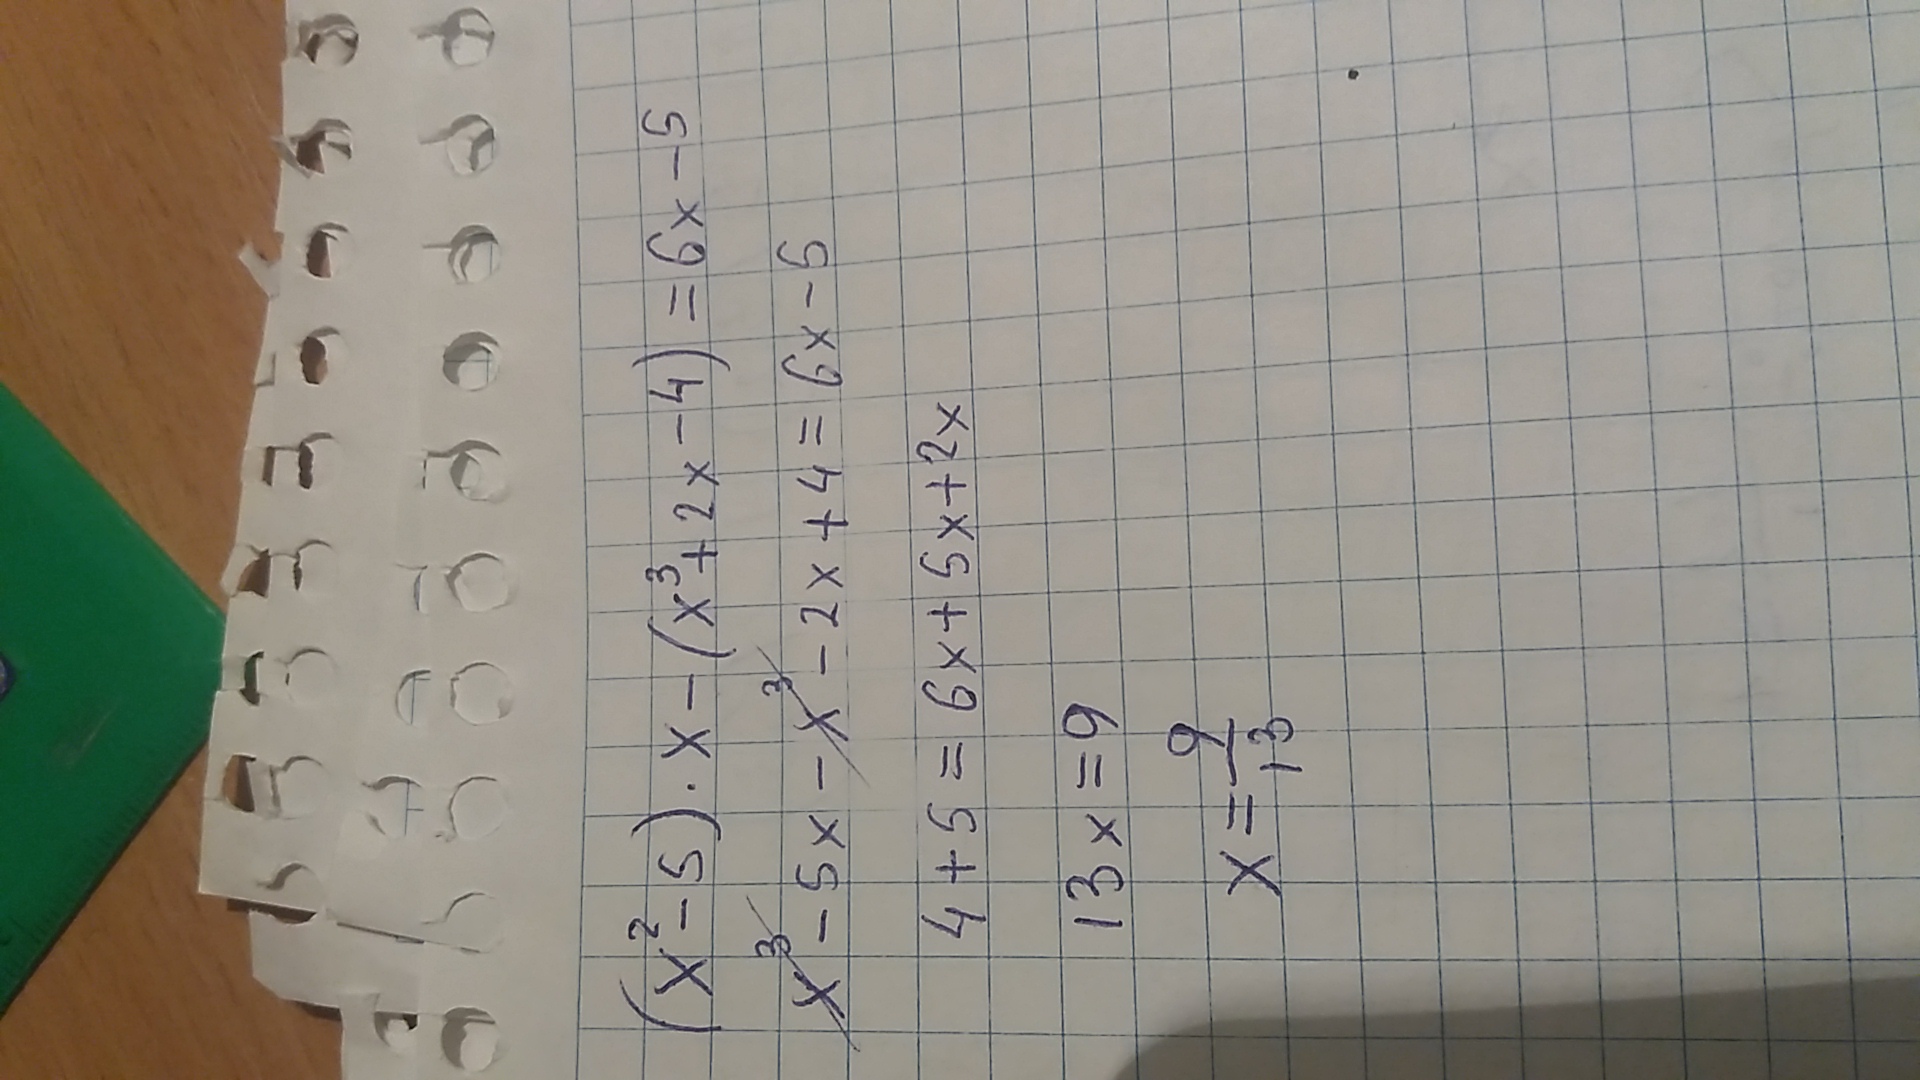 (x²-5)·x-(x³+2x-4)=6x-5
x³-5x-x³-2x+4=6x-5
4+5=6x+5x+2x
13x=9
x=9/13